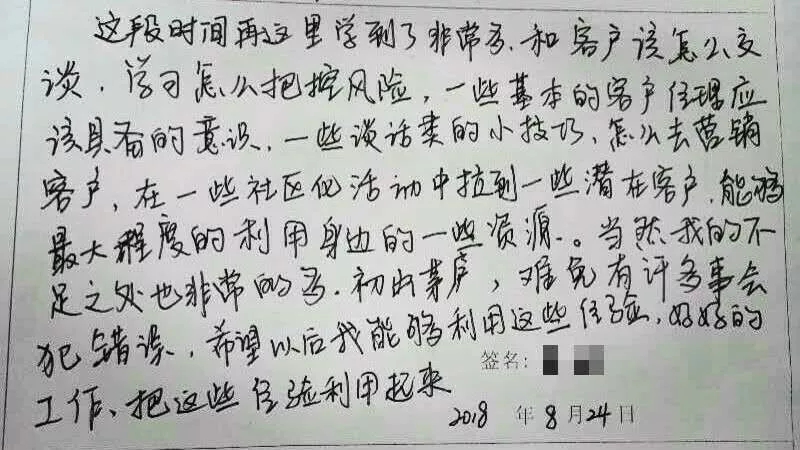 这段时间再这里学到了非常多.和客户该怎么交
谈.学习怎么把控风险,一些基本的客户经理应
该具备的意识,一些谈话类的小技巧,怎么去营销
客户,在一些社区化活动中拉到一些潜在客户.能够
最大程度的利用身边的一些资源.。当然我的不
足之处也非常的多.初出茅庐,难免有许多事会
犯错误,希望以后我能够利用这些经验,好好的
签名:
工作、把这些经验利用起来
2018 年 8 月 24 日